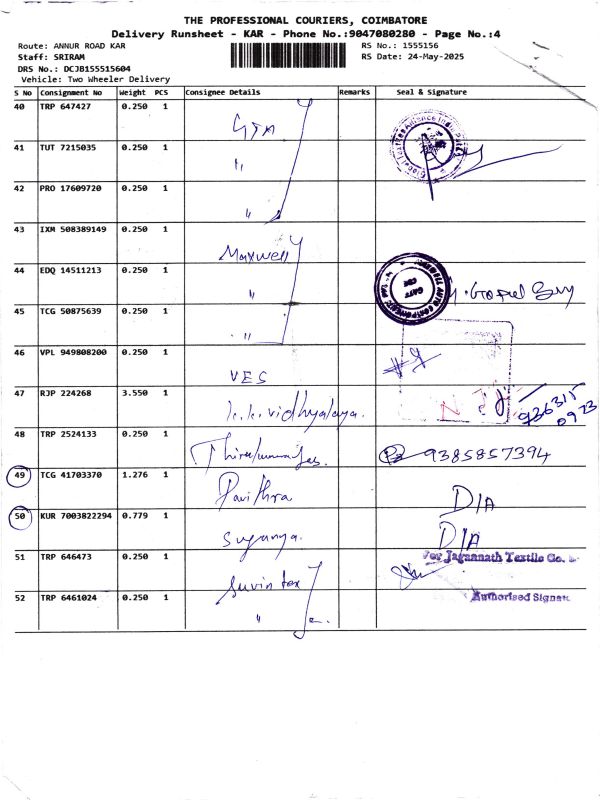 THE PROFESSIONAL COURIERS, COIMBATORE
Delivery Runsheet - KAR - Phone No.:9047080280 - Page No.:4
Route: ANNUR ROAD KAR RS No.: 1555156
Staff: SRIRAM RS Date: 24-May-2025
DRS No.: DCJB155515604
Vehicle: Two Wheeler Delivery
S No Consignment No Weight PCS Consignee Details Remarks Seal & Signature
40 TRP 647427 0.250 1
41 TUT 7215035 0.250 1 "
42 PRO 17609720 0.250 1 "
43 IXM 508389149 0.250 1 Maxwell
44 EDQ 14511213 0.250 1 "
45 TCG 50875639 0.250 1 "
46 VPL 949808200 0.250 1 VES
47 RJP 224268 3.550 1 k.k.vidhyalaya. 936315 0923
48 TRP 2524133 0.250 1 9385857394
49 TCG 41703370 1.276 1 Pavithra D/A
50 KUR 7003822294 0.779 1 Suganya. D/A
51 TRP 646473 0.250 1 Suvin tex For Jagannath Textile Co.
52 TRP 6461024 0.250 1 " Authorised Signat